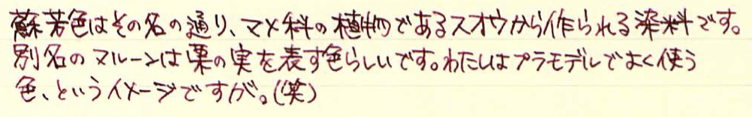 蘇芳色はその名の通り、マメ科の植物であるスオウから作られる染料です。
別名のマルーンは栗の実を表す色らしいです。わたしはプラモデルでよく使う
色、というイメージですが。(笑)